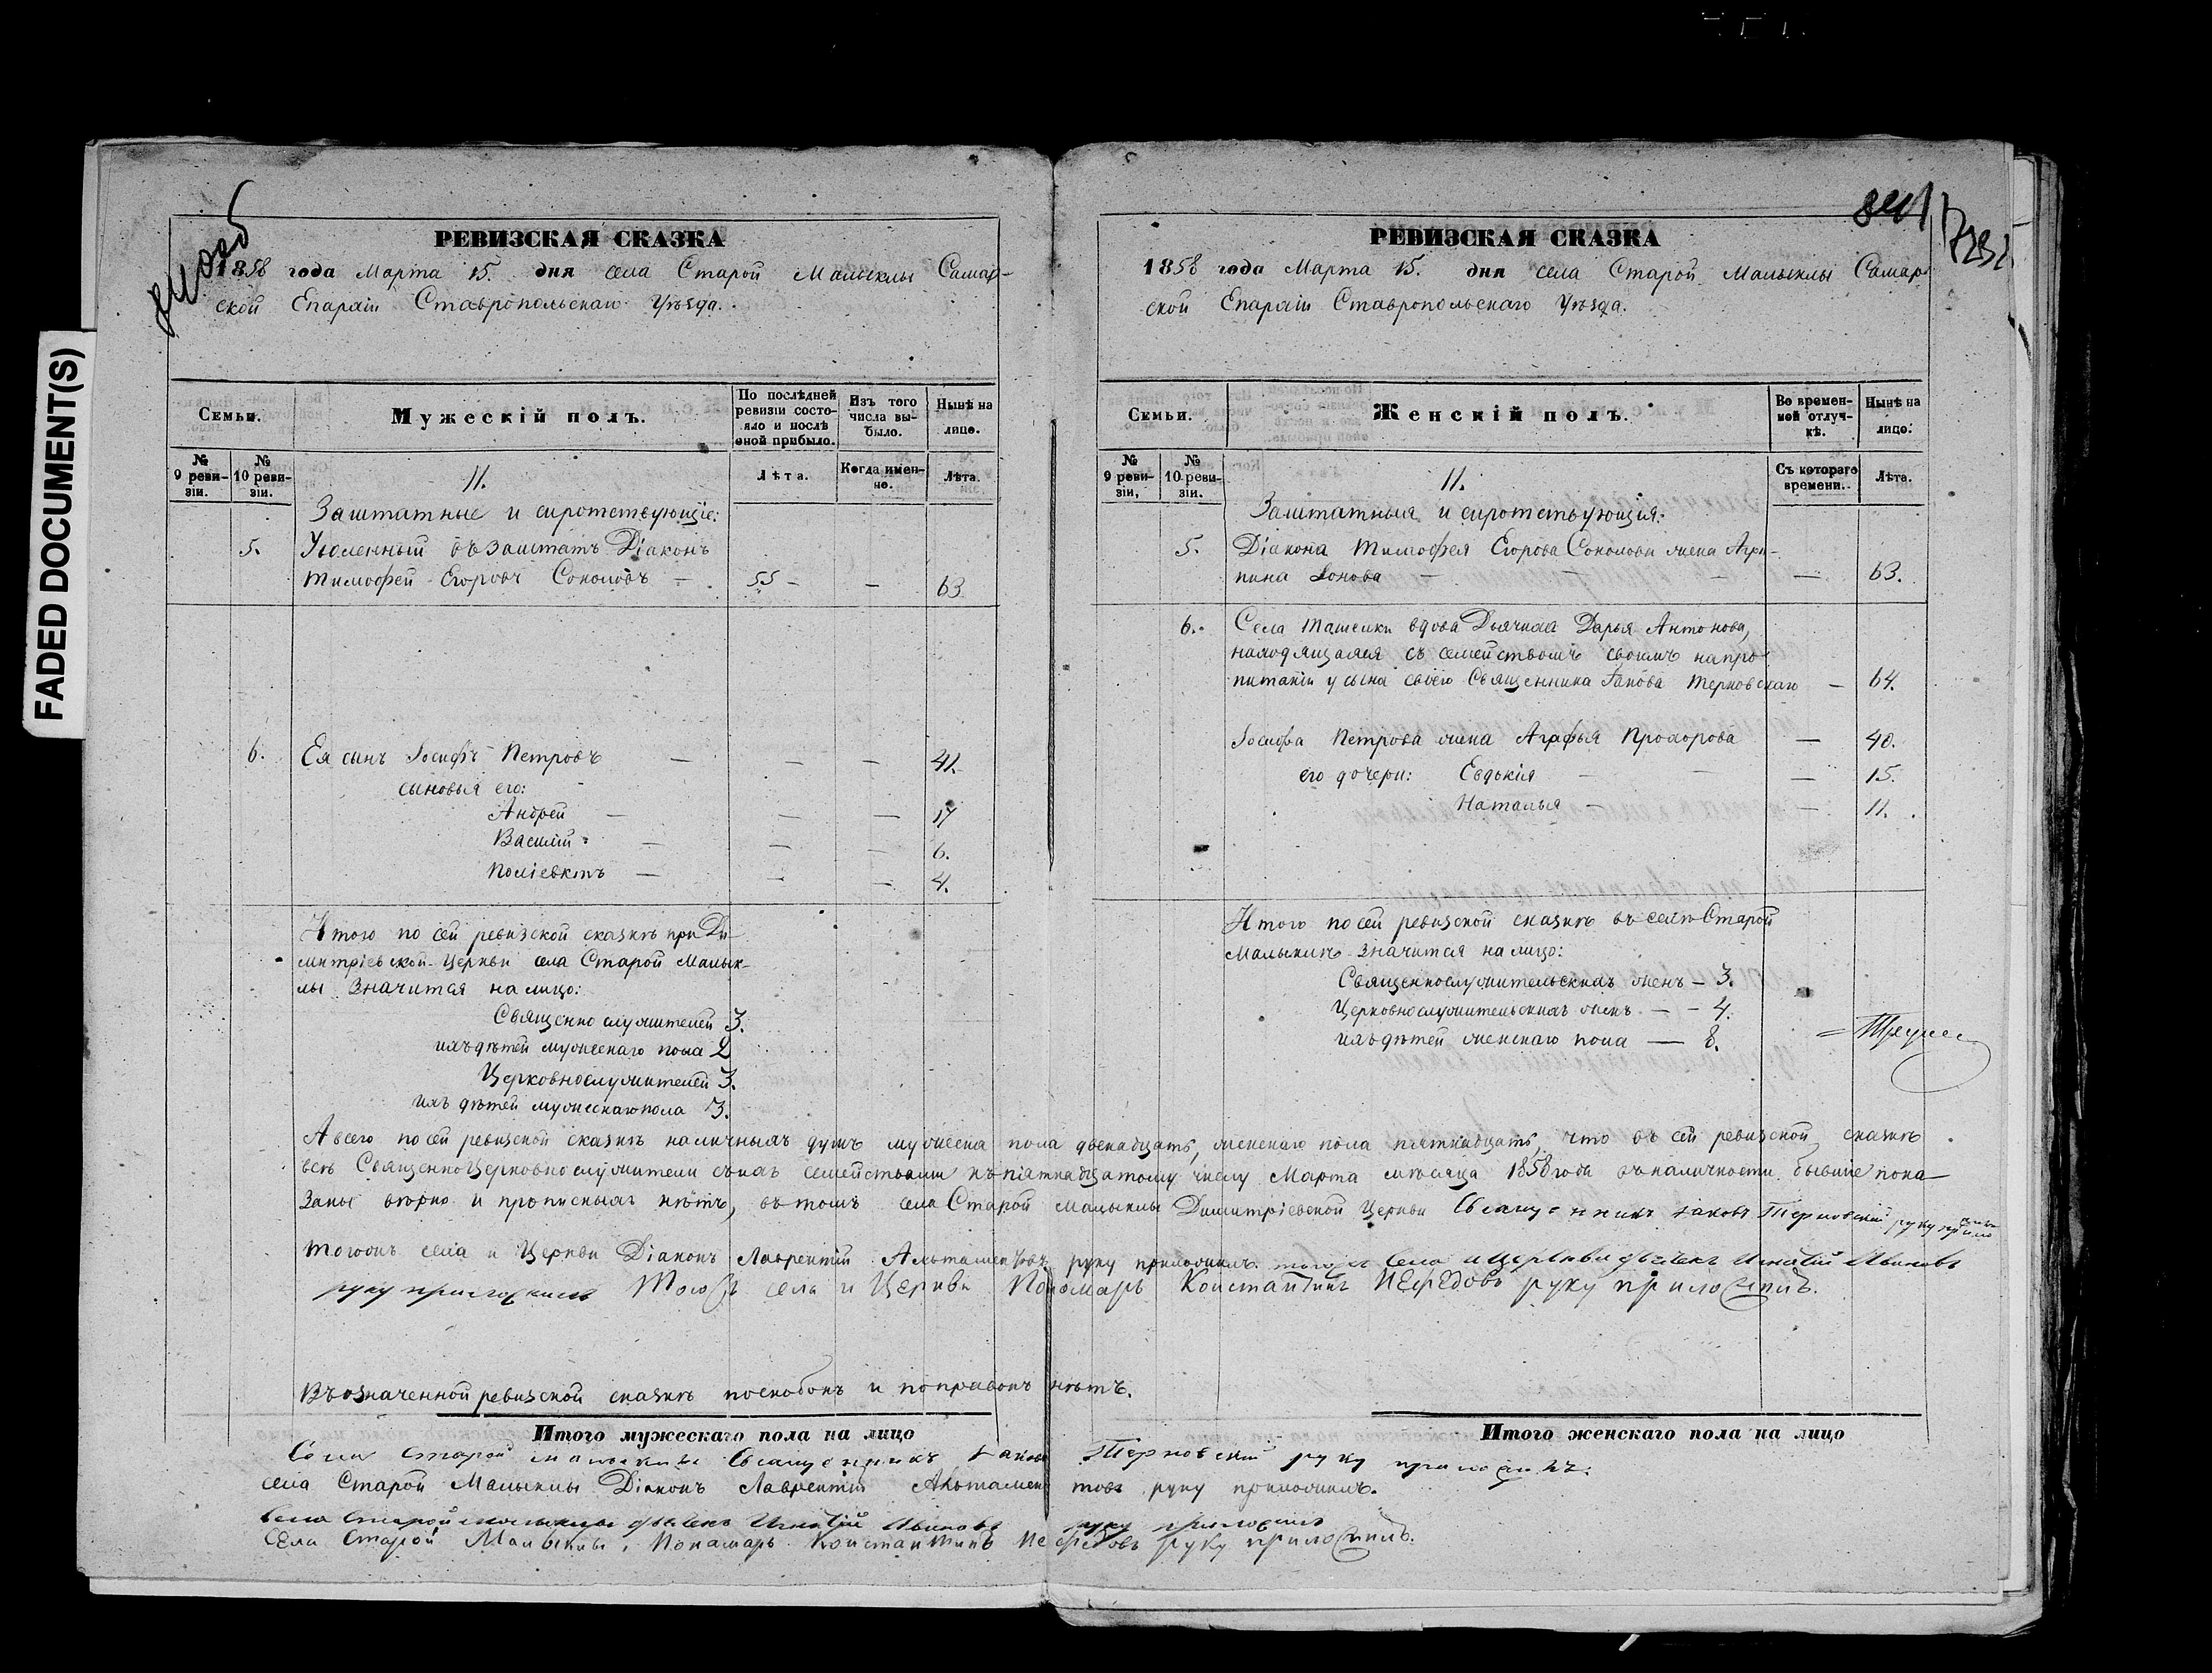 FADED DOCUMENT(S)
РЕВИЗСКАЯ СКАЗКА
1858 года Марта 15. дня села Старой Малыклы Самар-
ской Епархіи Ставропольскаго Уѣзда.
Семьи.
Мужескій полъ.
По послѣдней ревизіи состояло и послѣ оной прибыло.
Изъ того числа выбыло.
Нынѣ на лице.
№ 9 ревизіи.
№ 10 ревизіи.
Лѣта.
Когда именно.
Лѣта.
11.
Заштатные и сиротствующіе:
5. Уволенный въ заштатъ Діаконъ
Тимофей Егоровъ Соколовъ — 55 — — 63
6. Ея сынъ Іосифъ Петровъ — — — 41.
сыновья его:
Андрей — — — 17
Василій — — — 6.
Поліевктъ — — — 4.
Итого по сей ревизской сказкѣ при Ди-
митріевской Церкви села Старой Малык-
лы значится на лицо:
Священнослужителей 3.
ихъ дѣтей мужескаго пола 2
Церковнослужителей 3.
ихъ дѣтей мужескаго пола 3.
РЕВИЗСКАЯ СКАЗКА
841
1858 года Марта 15. дня села Старой Малыклы Самар-
ской Епархіи Ставропольскаго Уѣзда.
Семьи.
Женскій полъ.
Во временной отлучкѣ.
Нынѣ на лицо.
№ 9 ревизіи,
№ 10 ревизіи.
Съ котораго времени.
Лѣта.
11.
Заштатныя и сиротствующія:
5. Діакона Тимофея Егорова Соколова жена Агри-
пина — — 63.
6. Села Ташелки вдова Дьячиха Дарья Антонова,
находящаяся съ семействомъ своимъ на про-
питаніи у сына своего Священника Іакова Терновскаго — 64.
Іосифа Петрова жена Агафья Прохорова — 40.
его дочери: Евдокія — — 15.
Наталья — — 11.
Итого по сей ревизской сказкѣ въ селѣ Старой
Малыклѣ значится на лицо:
Священнослужительскихъ женъ — 3.
Церковнослужительскихъ женъ — — 4.
ихъ дѣтей женскаго пола — 8.
А всего по сей ревизской сказкѣ наличныхъ душъ мужеска пола двенадцать, женскаго пола пятнадцать, что въ сей ревизской сказкѣ
всѣ Священноцерковнослужители съ ихъ семействами къ пятнадцатому числу Марта мѣсяца 1858 года въ наличности бывшіе пока-
заны вѣрно и прописныхъ нѣтъ, въ томъ села Старой Малыклы Димитріевской Церкви Священникъ Іаковъ Терновскій руку приложилъ
Тогожъ села и Церкви Діаконъ Лаврентій Альтаментовъ руку приложилъ. тогожъ села и Церкви дьячекъ Игнатій Ивановъ
руку приложилъ Тогожъ села и Церкви Пономарь Константинъ Нефедовъ руку приложилъ.
Въ означенной ревизской сказкѣ поскобокъ и поправокъ нѣтъ.
Итого мужескаго пола на лицо
Итого женскаго пола на лицо
Села Старой Малыклы Священникъ Іаковъ Терновскій руку приложилъ.
села Старой Малыклы Діаконъ Лаврентій Альтаментовъ руку приложилъ.
Села Старой Малыклы дьячекъ Игнатій Ивановъ руку приложилъ
Села Старой Малыклы, Понамарь Константинъ Нефедовъ руку приложилъ.